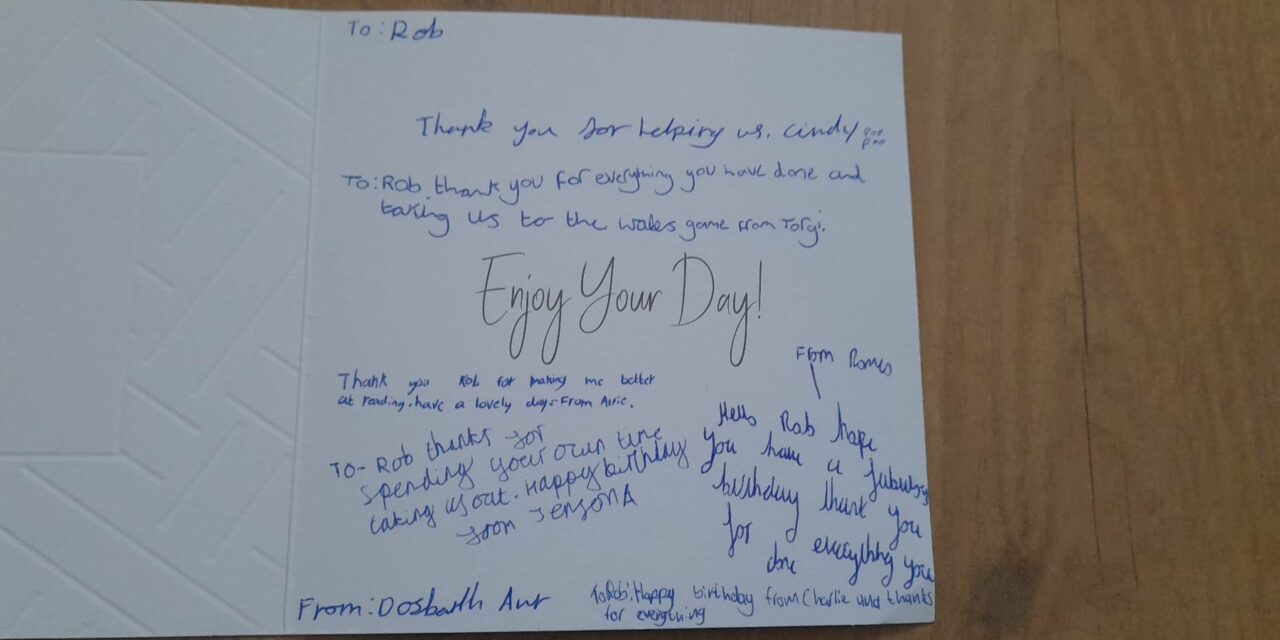 To: Rob
Thank you for helping us. Cindy
poo
poo
To: Rob thank you for everything you have done and
taking us to the wales game from Torgi.
Enjoy Your Day!
Thank you Rob for making me better
at reading. have a lovely days From Alfie.
From Romeo
Hello Rob hope
you have a fabulous
birthday thank you
for everything you
done
TO- Rob thanks for
spending your own time
taking us out. Happy birthday
from JENSON A
From: Dosbarth Aur
To Rob: Happy birthday from Charlie and thanks
for everything